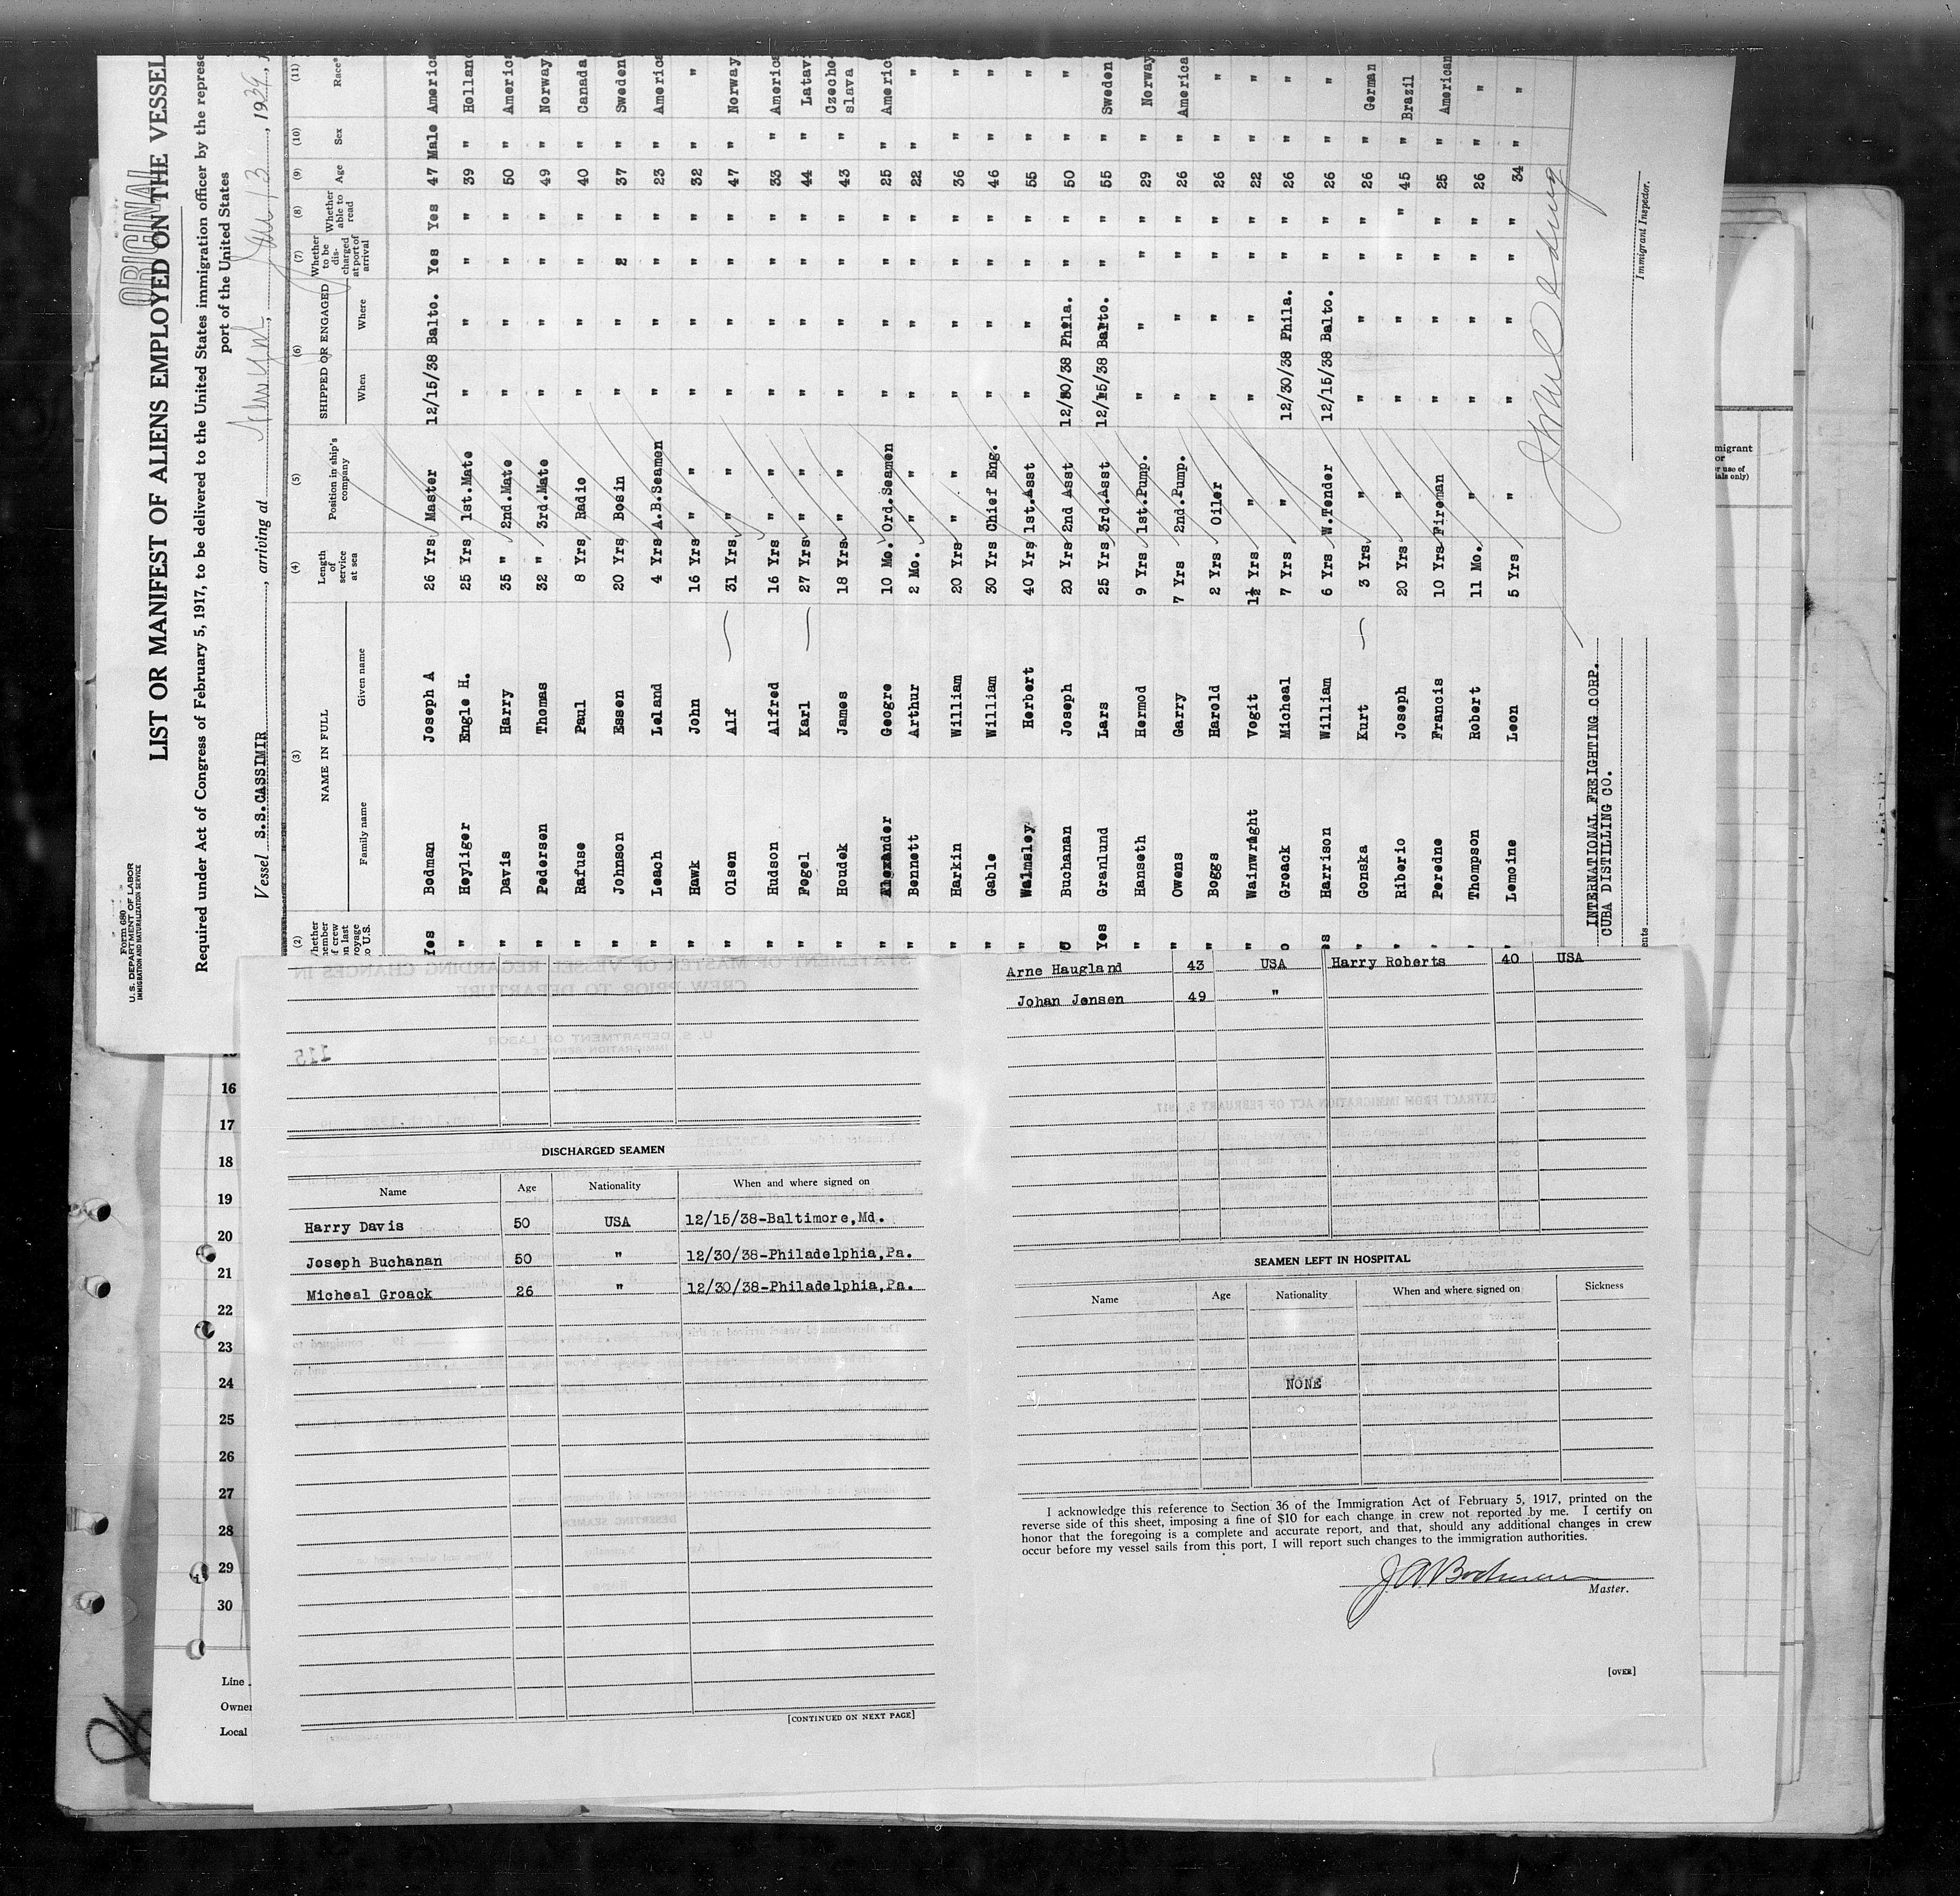 ORIGINAL
Form 680
U. S. DEPARTMENT OF LABOR
IMMIGRATION AND NATURALIZATION SERVICE
LIST OR MANIFEST OF ALIENS EMPLOYED ON THE VESSEL
Required under Act of Congress of February 5, 1917, to be delivered to the United States immigration officer by the represe
port of the United States
Vessel S.S.CASSIMIR, arriving at New York, Jan 13, 1939,
(2) (3) (4) (5) (6) (7) (8) (9) (10) (11)
Whether member of crew on last voyage to U.S. NAME IN FULL Family name Given name Length of service at sea Position in ship's company SHIPPED OR ENGAGED When Where Whether to be discharged at port of arrival Whether able to read Age Sex Race*
Yes Bodman Joseph A 26 Yrs Master 12/15/38 Balto. Yes Yes 47 Male America
" Heyliger Engle H. 25 Yrs 1st.Mate " " " " 39 " Holland
" Davis Harry 35 " 2nd.Mate " " " " 50 " Americ
" Pedersen Thomas 32 " 3rd.Mate " " " " 49 " Norway
" Rafuse Paul 8 Yrs Radio " " " " 40 " Canada
" Johnson Essen 20 Yrs Bosin " " 2 " 37 " Sweden
" Leach Leland 4 Yrs A.B.Seamen " " " " 23 " America
" Hawk John 16 Yrs " " " " " 32 " "
" Olsen Alf 31 Yrs " " " " " 47 " Norway
" Hudson Alfred 16 Yrs " " " " " 33 " America
" Fogel Karl 27 Yrs " " " " " 44 " Latava
" Houdek James 18 Yrs " " " " " 43 " Czecho-slava
" Alexander Geogre 10 Mo. Ord.Seamen " " " " 25 " Americ
" Bennett Arthur 2 Mo. " " " " " 22 " "
" Harkin William 20 Yrs " " " " " 36 " "
" Gable William 30 Yrs Chief Eng. " " " " 46 " "
" Walmsley Herbert 40 Yrs 1st.Asst " " " " 55 " "
Buchanan Joseph 20 Yrs 2nd Asst 12/30/38 Phila. " " 50 " "
Yes Granlund Lars 25 Yrs 3rd.Asst 12/15/38 Balto. " " 55 " Sweden
" Hanseth Hermod 9 Yrs 1st.Pump. " " " " 29 " Norway
" Owens Garry 7 Yrs 2nd.Pump. " " " " 26 " America
" Boggs Harold 2 Yrs Oiler " " " " 26 " "
" Wainwright Vogit 1½ Yrs " " " " " 22 " "
o Groack Micheal 7 Yrs " 12/30/38 Phila. " " 26 " "
es Harrison William 6 Yrs W.Tender 12/15/38 Balto. " " 26 " "
" Gonska Kurt 3 Yrs " " " " " 26 " German
" Riberio Joseph 20 Yrs " " " " " 45 " Brazil
" Peredne Francis 10 Yrs Fireman " " " " 25 " American
" Thompson Robert 11 Mo. " " " " " 26 " "
" Lemoine Leon 5 Yrs " " " " " 34 " "
INTERNATIONAL FREIGHTING CORP.
CUBA DISTILLING CO.
ents
Immigrant Inspector.
migrant
or
r use of
ials only)
16
17
18
19
20
21
22
23
24
25
26
27
28
29
30
Line
Owner
Local
DISCHARGED SEAMEN
Name Age Nationality When and where signed on
Harry Davis 50 USA 12/15/38-Baltimore,Md.
Joseph Buchanan 50 " 12/30/38-Philadelphia,Pa.
Micheal Groack 26 " 12/30/38-Philadelphia,Pa.
[CONTINUED ON NEXT PAGE]
Arne Haugland 43 USA Harry Roberts 40 USA
Johan Jensen 49 "
SEAMEN LEFT IN HOSPITAL
Name Age Nationality When and where signed on Sickness
NONE
I acknowledge this reference to Section 36 of the Immigration Act of February 5, 1917, printed on the
reverse side of this sheet, imposing a fine of $10 for each change in crew not reported by me. I certify on
honor that the foregoing is a complete and accurate report, and that, should any additional changes in crew
occur before my vessel sails from this port, I will report such changes to the immigration authorities.
J. A. Bodman
Master.
[OVER]